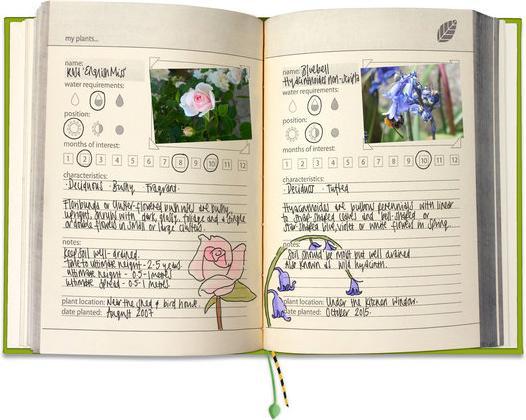 my plants...
name:
Rosa 'English Miss'
water requirements:
position:
months of interest:
1 2 3 4 5 6 7 8 9 10 11 12
characteristics:
· Deciduous · Bushy · Fragrant ·
Floribunda or cluster-flowered bush roses are bushy,
upright, shrubs with dark, glossy, foliage and a single
or double flowers in small or large clusters.
notes:
Keep soil well-drained.
time to ultimate height - 2-5 years.
ultimate height - 0.5-1 metres.
ultimate spread - 0.5-1 metres.
plant location: Near the shed & bird house.
date planted: August 2007
name: Bluebell
Hyacinthoides non-scripta
water requirements:
position:
months of interest:
1 2 3 4 5 6 7 8 9 10 11 12
characteristics:
· Deciduous · Tufted
Hyacinthoides are bulbous perennials with linear
to strap-shaped leaves and bell-shaped or
star-shaped blue, violet or white flowers in spring.
notes:
Soil should be moist but well drained
Also known as wild hyacinth.
plant location: Under the kitchen window.
date planted: October 2015.